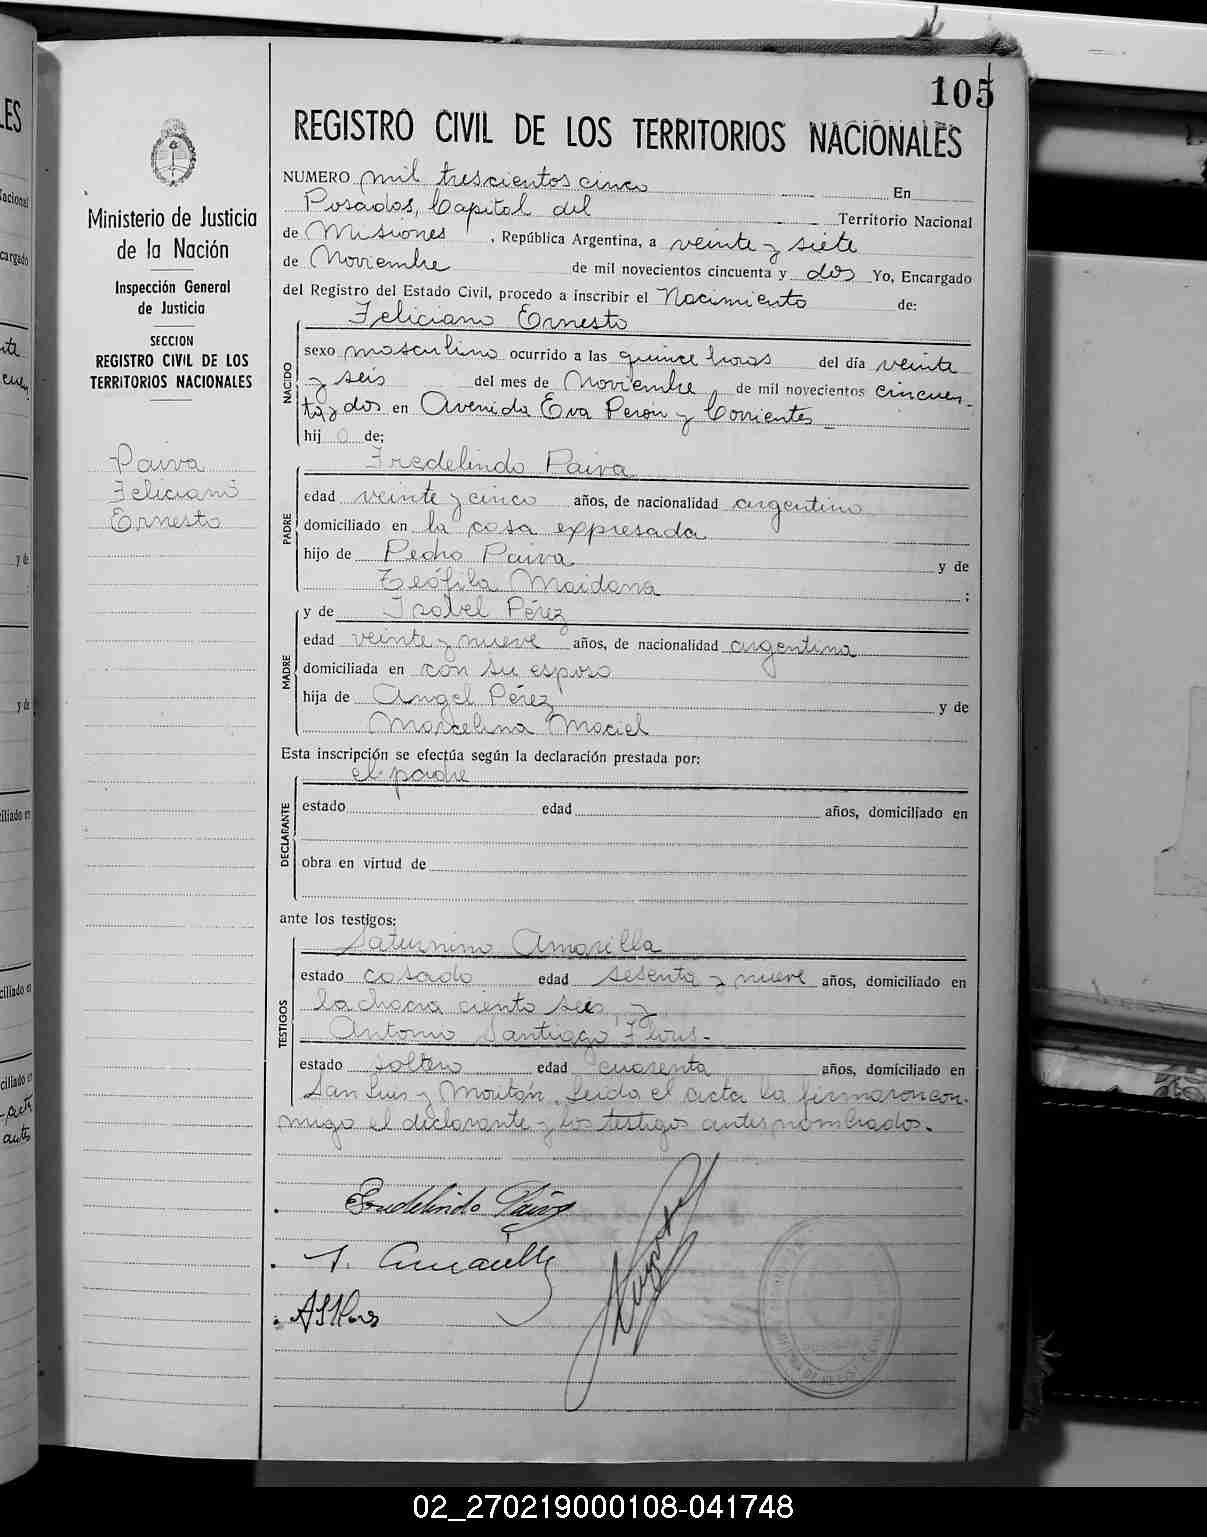 105
REGISTRO CIVIL DE LOS TERRITORIOS NACIONALES
Ministerio de Justicia
de la Nación
Inspección General
de Justicia
SECCION
REGISTRO CIVIL DE LOS
TERRITORIOS NACIONALES
Paiva
Feliciano
Ernesto
NUMERO mil trescientos cinco En
Posadas, Capital del Territorio Nacional
de Misiones, República Argentina, a veinte y siete
de Noviembre de mil novecientos cincuenta y dos Yo, Encargado
del Registro del Estado Civil, procedo a inscribir el Nacimiento de:
Feliciano Ernesto
NACIDO
sexo masculino ocurrido a las quince horas del día veinte
y seis del mes de Noviembre de mil novecientos cincuen-
ta y dos en Avenida Eva Perón y Corrientes
hijo de:
Fredelindo Paiva
PADRE
edad veinte y cinco años, de nacionalidad argentino
domiciliado en la casa expresada
hijo de Pedro Paiva y de
Teófila Maidana ;
y de Isabel Pérez
MADRE
edad veinte y nueve años, de nacionalidad argentina
domiciliada en con su esposo
hija de Angel Pérez y de
Marcelina Maciel
Esta inscripción se efectúa según la declaración prestada por:
el padre
DECLARANTE
estado edad años, domiciliado en
obra en virtud de
ante los testigos:
Saturnino Amarilla
TESTIGOS
estado casado edad sesenta y nueve años, domiciliado en
la chacra ciento seis, y
Antonio Santiago Flores.-
estado soltero edad cuarenta años, domiciliado en
San Luis y Moritán. Leida el acta la firmaron con-
migo el declarante y los testigos antes nombrados.
Fredelindo Paiva
S. Amarilla
ASFlores
02_270219000108-041748